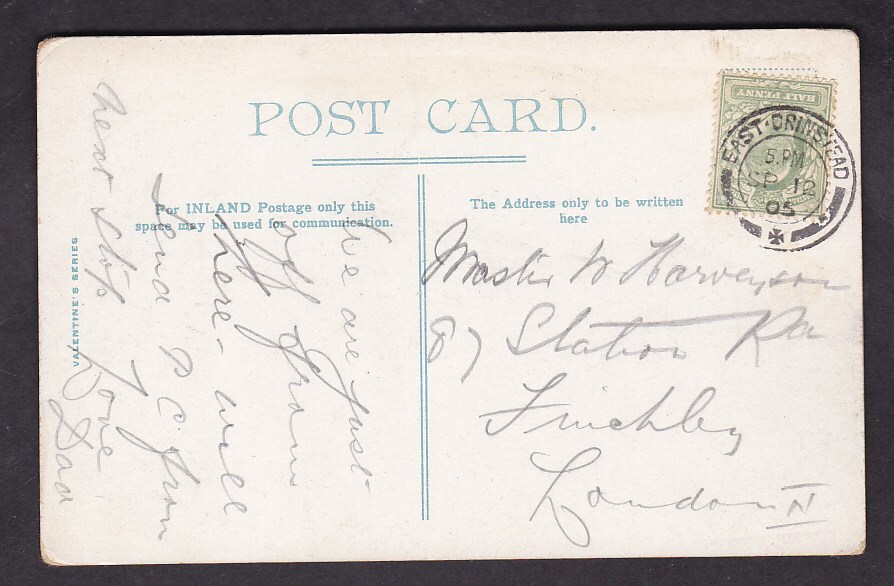 POST CARD.
For INLAND Postage only this
space may be used for communication.
The Address only to be written
here
VALENTINE'S SERIES
HALF PENNY
EAST-GRINSTEAD
5.PM
SP 12
05
We are just
off from
here - will
send P.C. from
next stop Love
Dad
Master W Harveyson
87 Station Rd
Finchley
London N